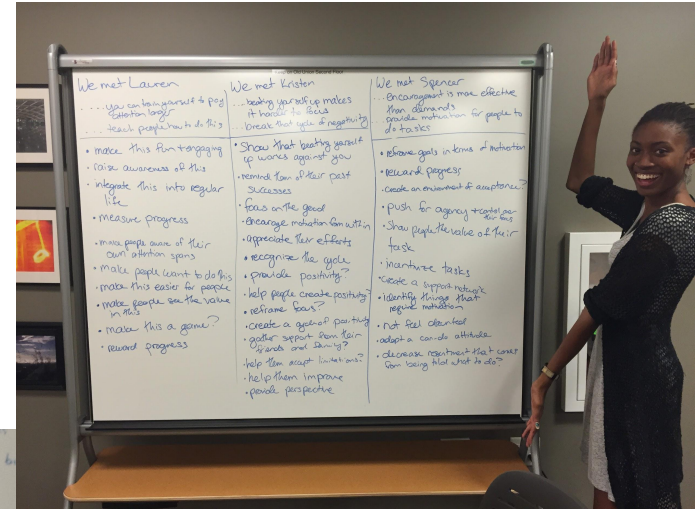 We met Lauren
....you can train yourself to pay
attention longer
....teach people how to do this
• make this fun + engaging
• raise awareness of this
• integrate this into regular
life
• measure progress
• make people aware of their
own attention spans
• make people want to do this
• make this easier for people
• make people see the value
in this
• make this a game?
• reward progress
We met Kristen
...beating yourself up makes
it harder to focus
...break that cycle of negativity
• Show that beating yourself
up works against you
• remind them of their past
successes
• focus on the good
• encourage motivation from within
• appreciate their efforts
• recognize the cycle
• provide positivity?
• help people create positivity?
• reframe focus?
• create a cycle of positivity
• gather support from their
friends and family?
• help them accept limitations?
• help them improve
• provide perspective
We met Spencer
...encouragement is more effective
than demands
provide motivation for people to
do tasks
• reframe goals in terms of motivation
• reward progress
• create an environment of acceptance?
• push for agency + control over
their
• Show people the value of their
task
• incentivize tasks
• create a support network
• identify things that
require motivation
• not feel daunted
• adopt a can-do attitude
• decrease resentment that comes
from being told what to do?